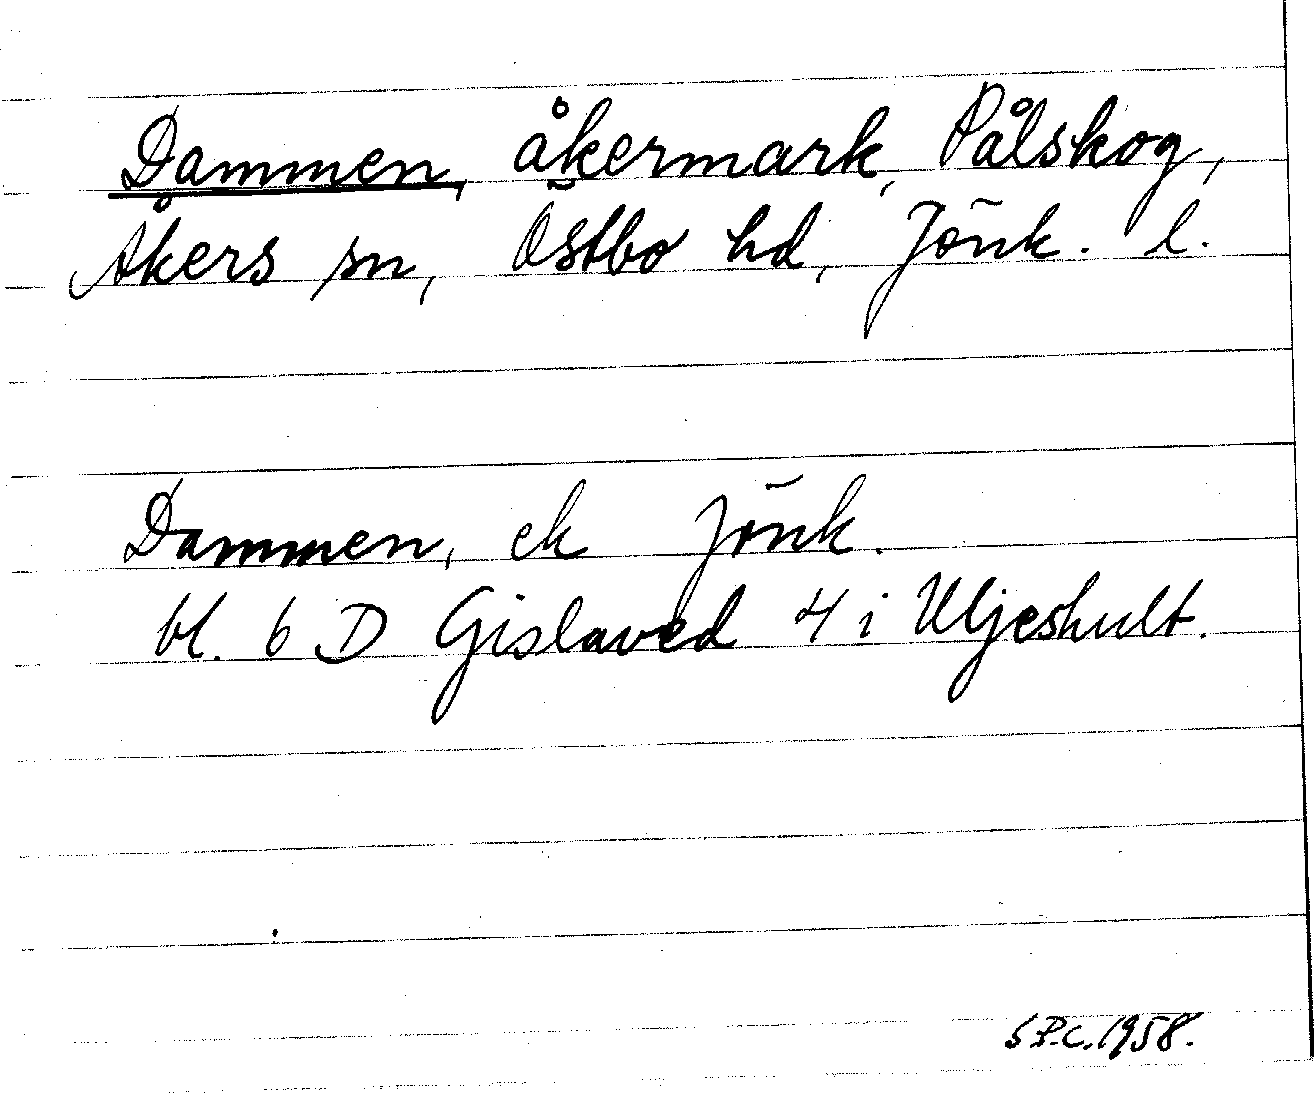 Dammen, åkermark, Pålskog,
Åkers sn, Östbo hd, Jönk. l.
Dammen, ek Jönk.
bl. 6 D Gislaved 4 i Uljeshult.
S P.C. 1958.